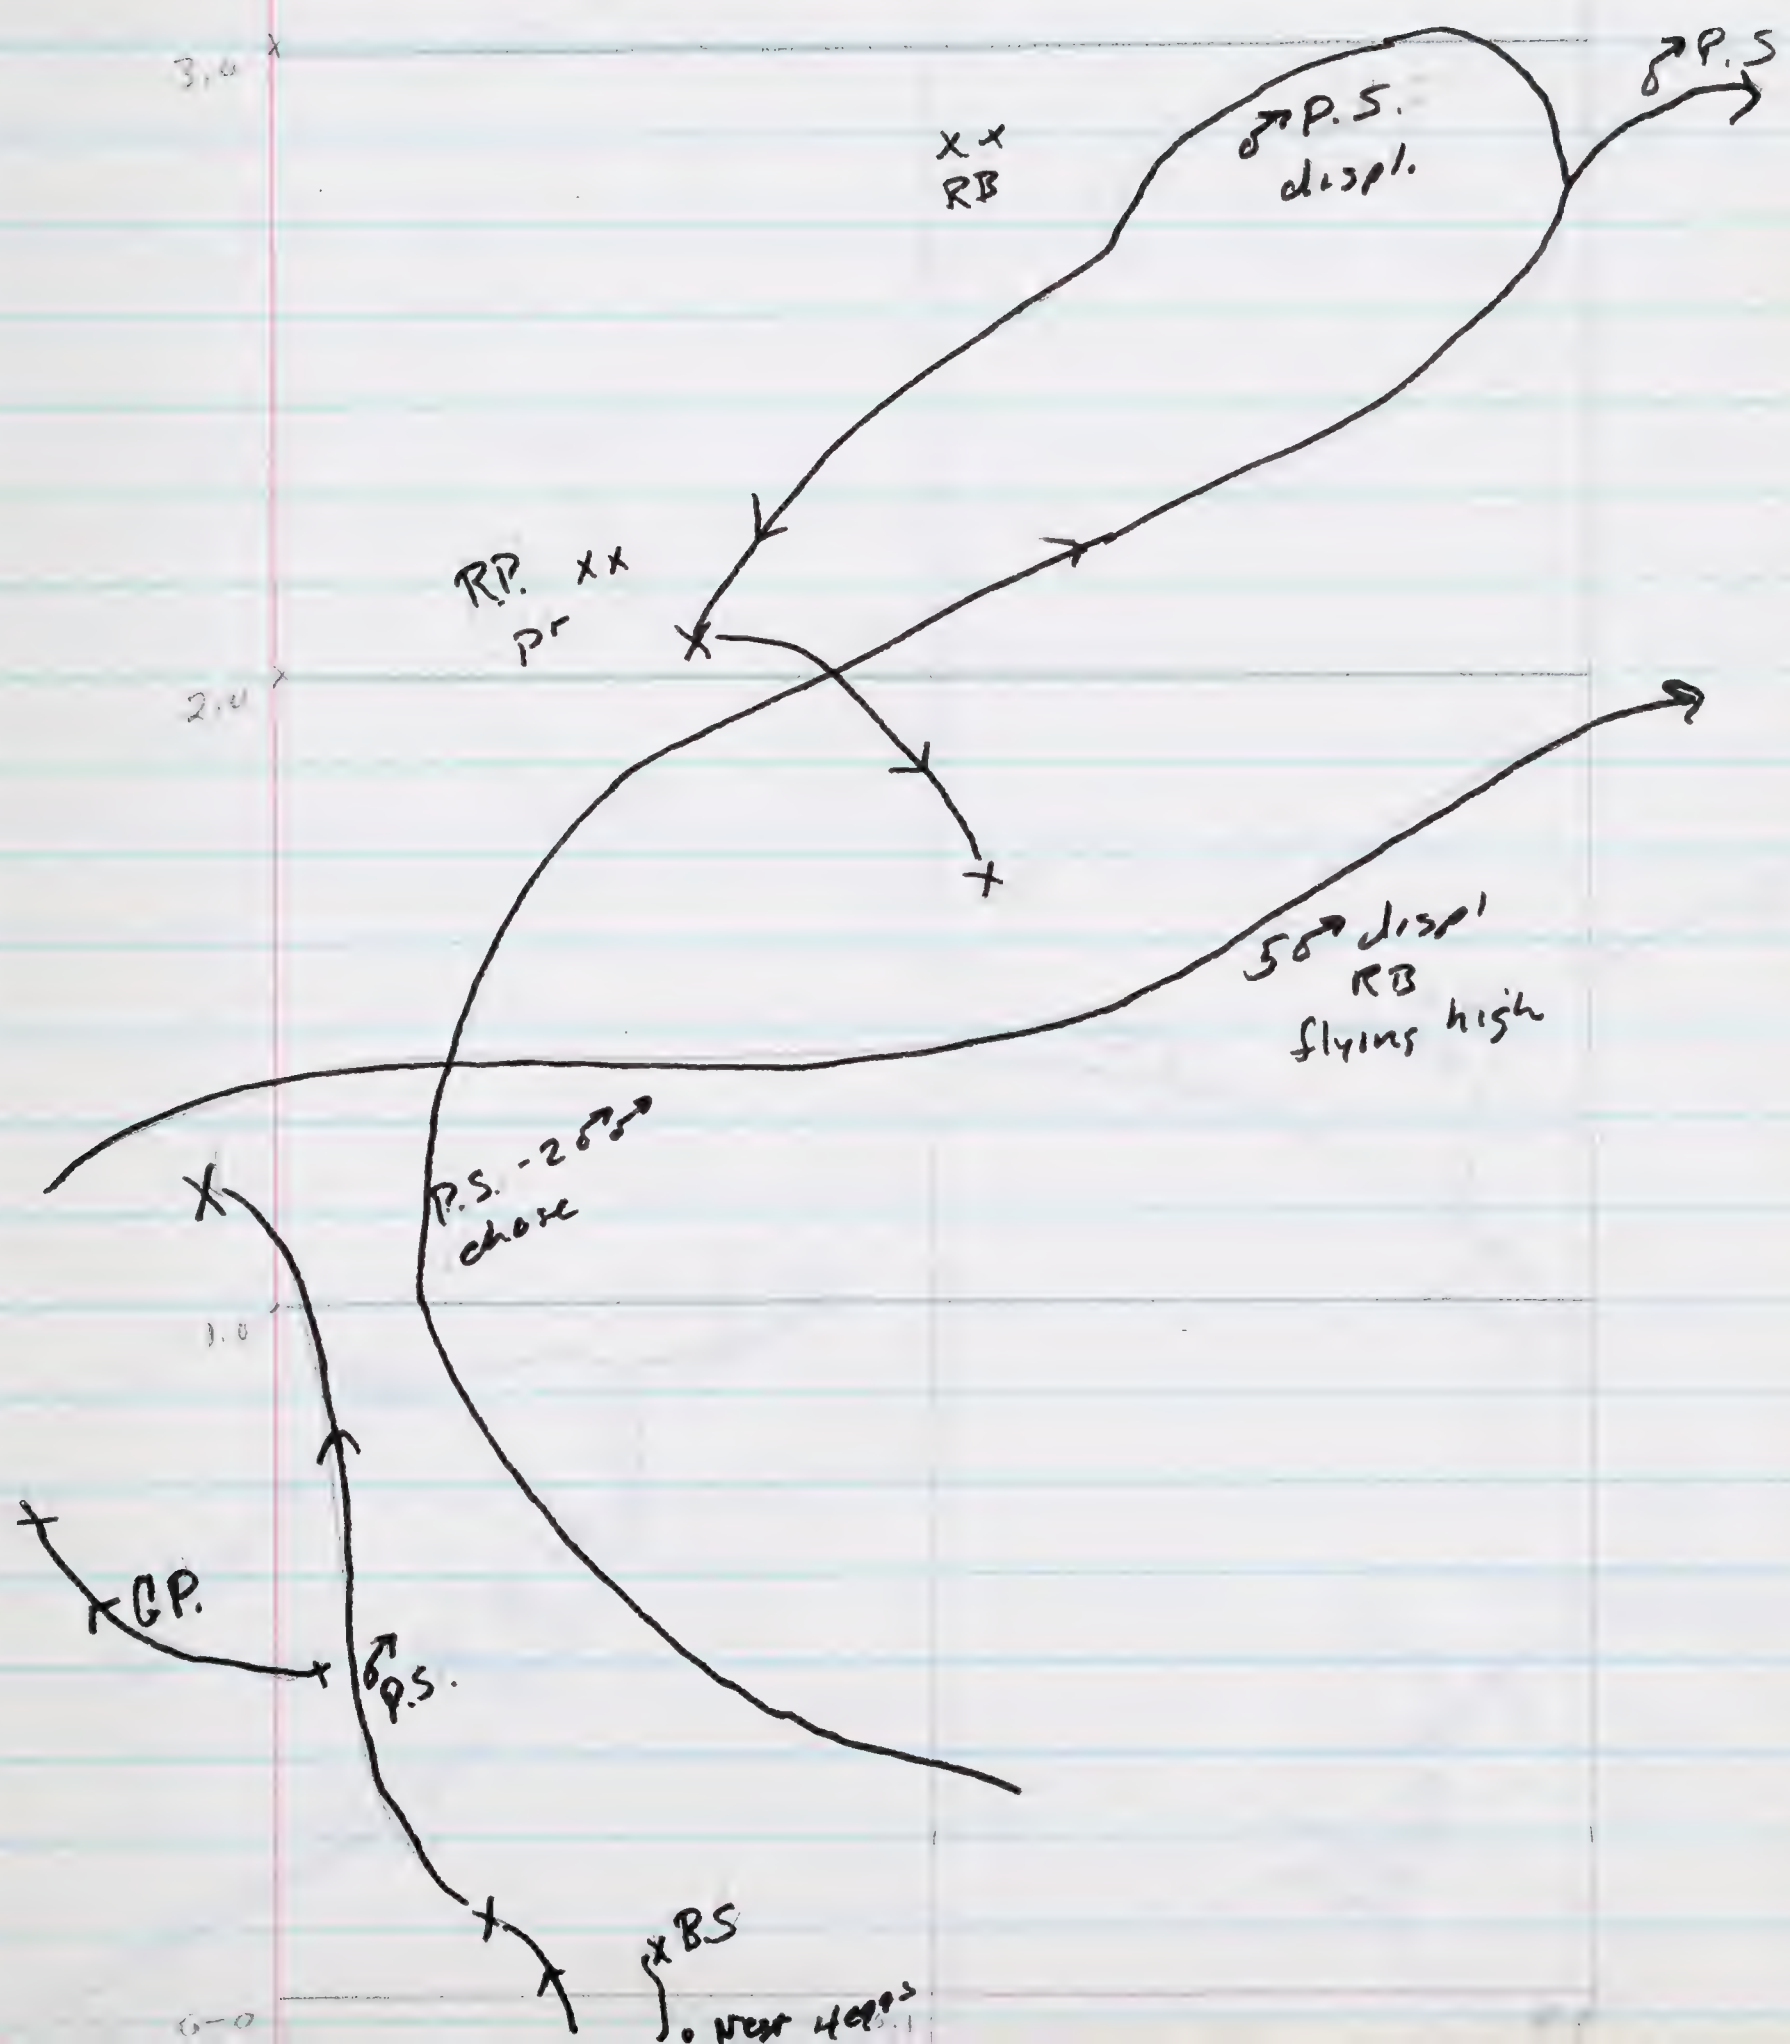 3.0
♂ P.S
x x
RB
♂ P.S.
displ.
R.P. x x
pr
2.0
5♂ displ
RB
flying high
P.S. - 2 ♂♂
chase
1.0
G.P.
♂
P.S.
x B.S
Nest 4 eggs
0-0